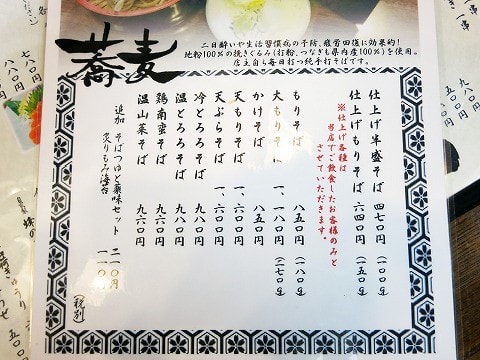 蕎麦
二日酔いや生活習慣病の予防、疲労回復に効果的!
地粉100%の挽きぐるみ(打粉、つなぎも県内産100%)を使用。
店主自ら毎日打つ純手打そばです。
仕上げ半盛そば 四七〇円 (一〇〇g)
仕上げもりそば 六四〇円 (一五〇g)
※仕上げ各種は
当店でご飲食したお客様のみと
させていただきます。
もりそば 八五〇円 (一八〇g)
大もりそば 一、一八〇円 (二七〇g)
かけそば 八五〇円
天もりそば 一、六〇〇円
天ぷらそば 一、六〇〇円
冷とろろそば 九八〇円
温とろろそば 九八〇円
鶏南蛮そば 九六〇円
温山菜そば 九六〇円
追加 そばつゆと薬味セット 二一〇円
炙りもみ海苔 一一〇円
(税別)